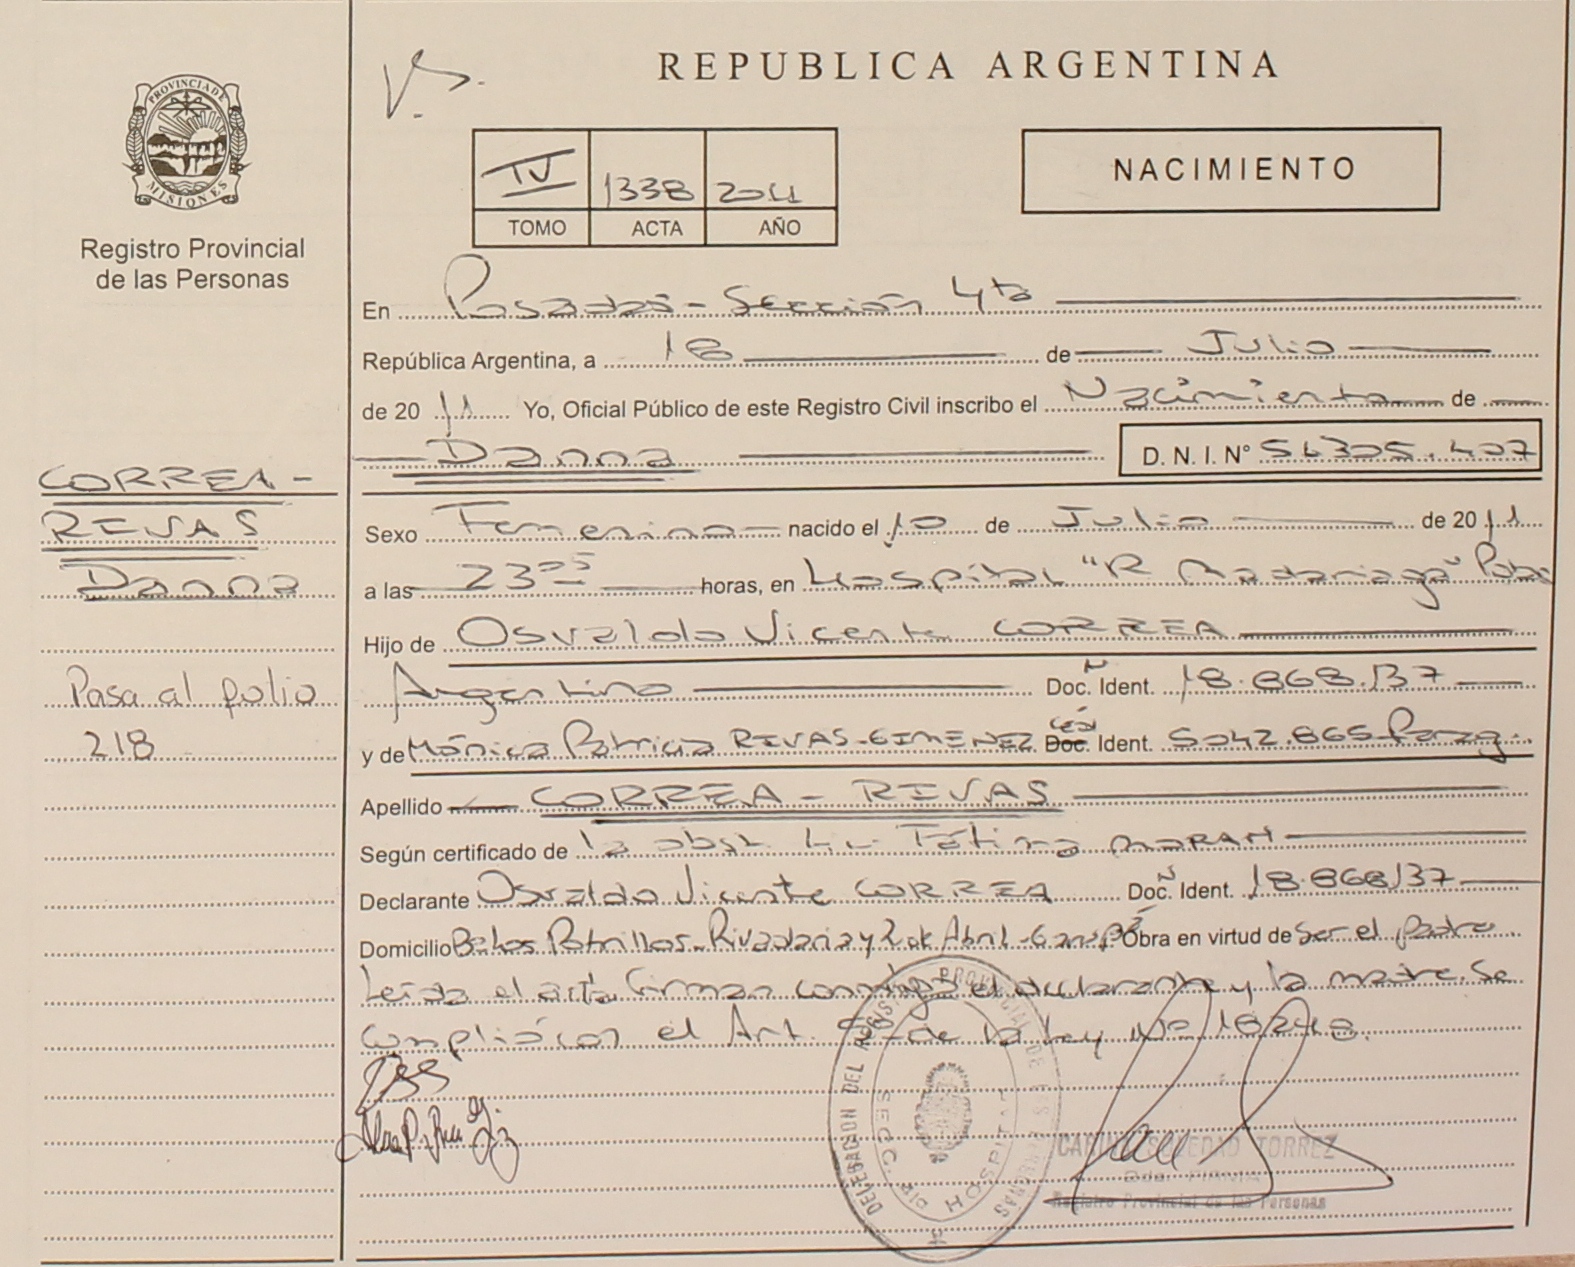 PROVINCIA DE
MISIONES
Registro Provincial
de las Personas
REPUBLICA ARGENTINA
NACIMIENTO
IV 1338 2011
TOMO ACTA AÑO
En Posadas - Sección 4ta
República Argentina, a 18 de Julio
de 2011 Yo, Oficial Público de este Registro Civil inscribo el Nacimiento de
Danna D. N. I. Nº 51.305.407
CORREA -
RIVAS
Danna
Pasa al folio
218
Sexo Femenino nacido el 10 de Julio de 2011
a las 23 horas, en Hospital "R Madariaga"
Hijo de Osvaldo Vicente CORREA
Argentino Doc. Ident. 18.868.137
y de Mónica Patricia RIVAS-GIMENEZ Doc. Ident. 5042.865 Parag.
Apellido CORREA - RIVAS
Según certificado de la obst. Lic Fátima MORAN
Declarante Osvaldo Vicente CORREA Doc. Ident. 18.868137
Domicilio Potrillos Rivadavia y 2 de Abril Obra en virtud de ser el padre
Leída el acta firman conmigo el declarante y la madre. Se
cumplió con el Art. de la Ley Nº 18248.
DELEGACION DEL REGISTRO PROVINCIAL DE LAS PERSONAS
SECC. HOSPITAL
SOLEDAD TORREZ
Registro Provincial de las Personas